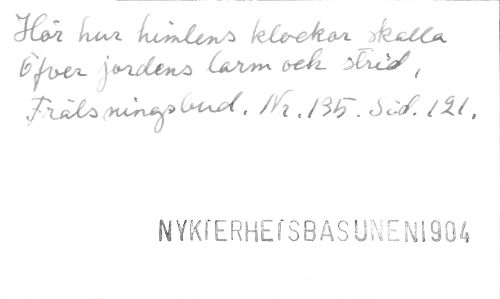 Hör hur himlens klockor skalla
Öfver jordens larm och strid,
Frälsningsbud. Nr. 135. Sid. 121.
NYKTERHETSBASUNEN1904